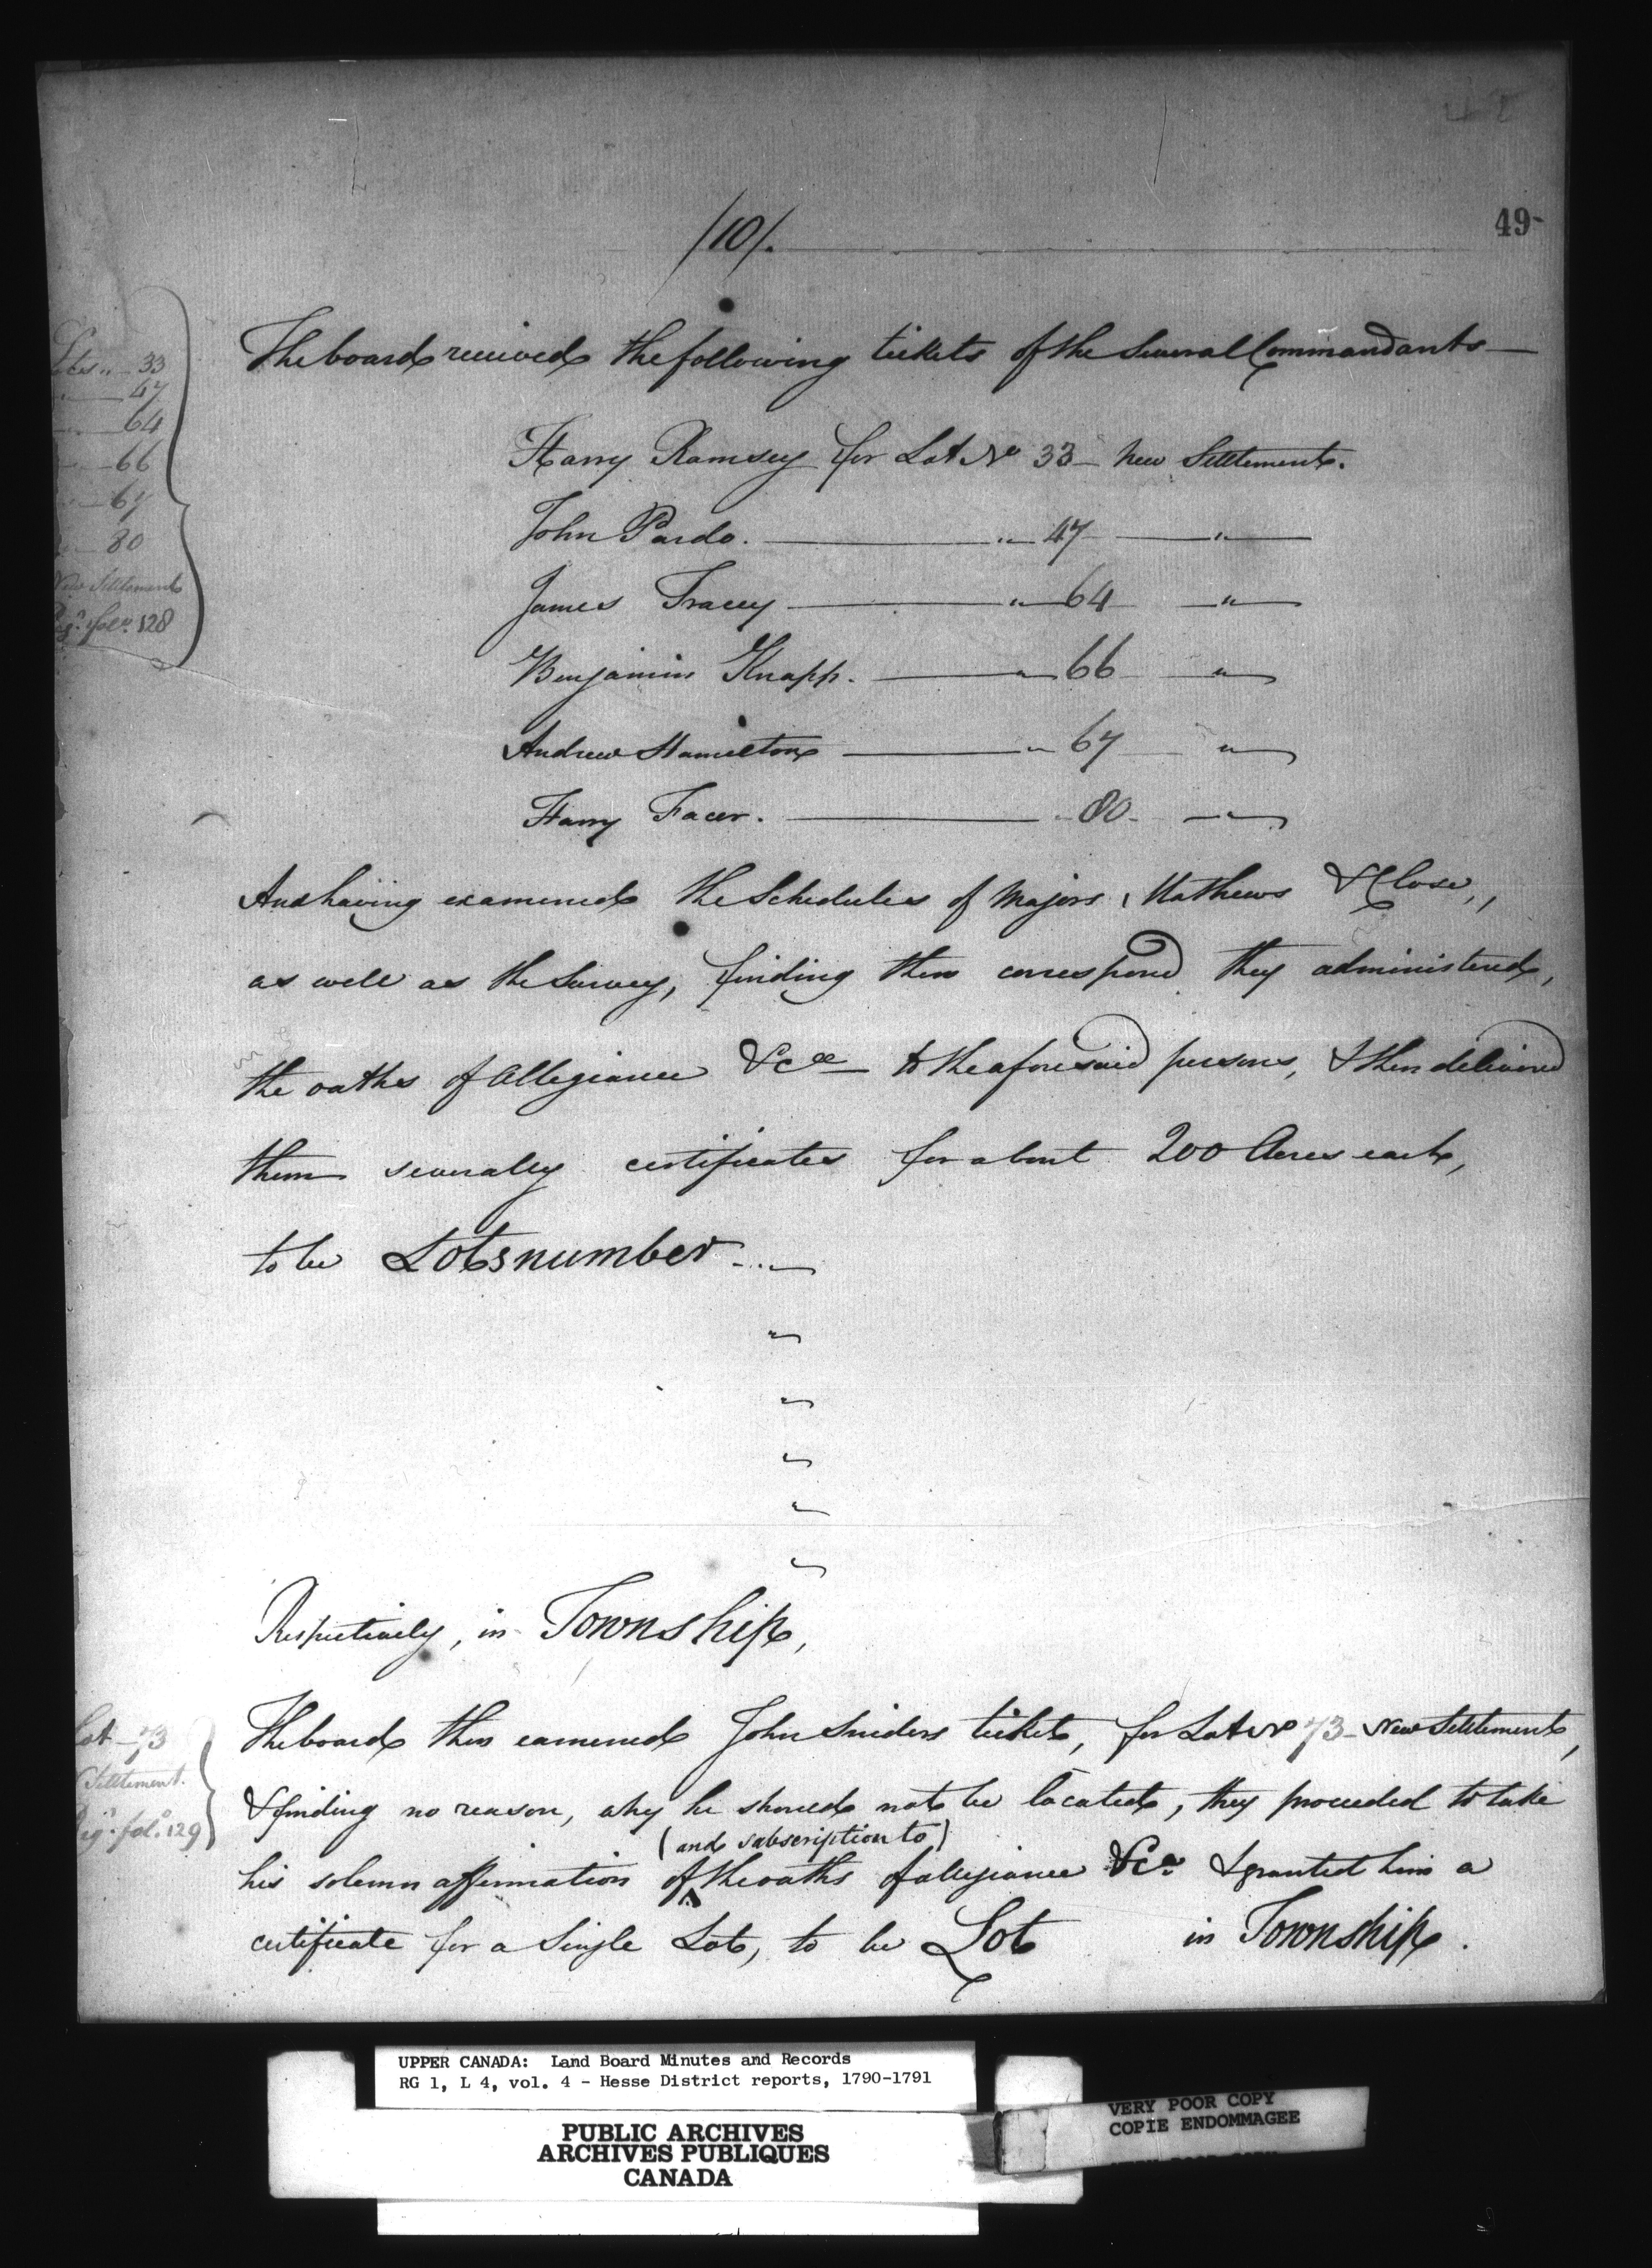 /10/.
49
Lotes „ — 33
„ — 47
„ — 64
„ — 66
„ — 67
„ — 80
New Settlement
Reg.r fol.o 128
The board received the following tickets of the Several Commandants —
Harry Ramsey for Lot No 33 — New Settlement.
John Pardo. — „ — 47 — „ —
James Tracey — „ — 64 — „ —
Benjamin Knapp. — „ — 66 — „ —
Andrew Hamilton — „ — 67 — „ —
Harry Facer. — „ — 80 — „ —
And having examined the Schedules of Majors Mathews & Close,
as well as the Survey, finding them correspond they administered,
the oaths of Allegiance &ca to the aforesaid persons, & then delivered
them severally certificates for about 200 Acres each,
to be Lots number — „ —
„
„
„
„
„
Respectively, in Township,
Lot — 73
Settlement.
Reg.r fol.o 129
The board then examined John Sniders ticket, for Lot No 73 — New Settlement,
& finding no reason, why he should not be located, they proceeded to take
(and subscription to)
his solemn affirmation of the oaths of allegiance &ca & granted him a
certificate for a Single Lot, to be Lot in Township.
UPPER CANADA: Land Board Minutes and Records
RG 1, L 4, vol. 4 - Hesse District reports, 1790-1791
PUBLIC ARCHIVES
ARCHIVES PUBLIQUES
CANADA
VERY POOR COPY
COPIE ENDOMMAGEE